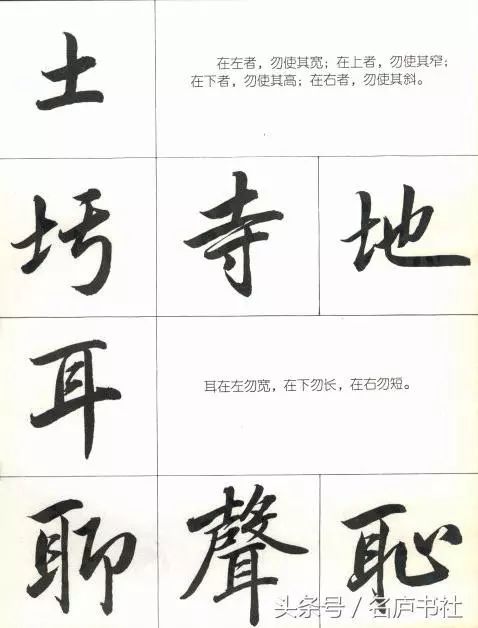 土
在左者，勿使其宽；在上者，勿使其窄；
在下者，勿使其高；在右者，勿使其斜。
圬 寺 地
耳
耳在左勿宽，在下勿长，在右勿短。
聊 聲 恥
头条号 / 名庐书社